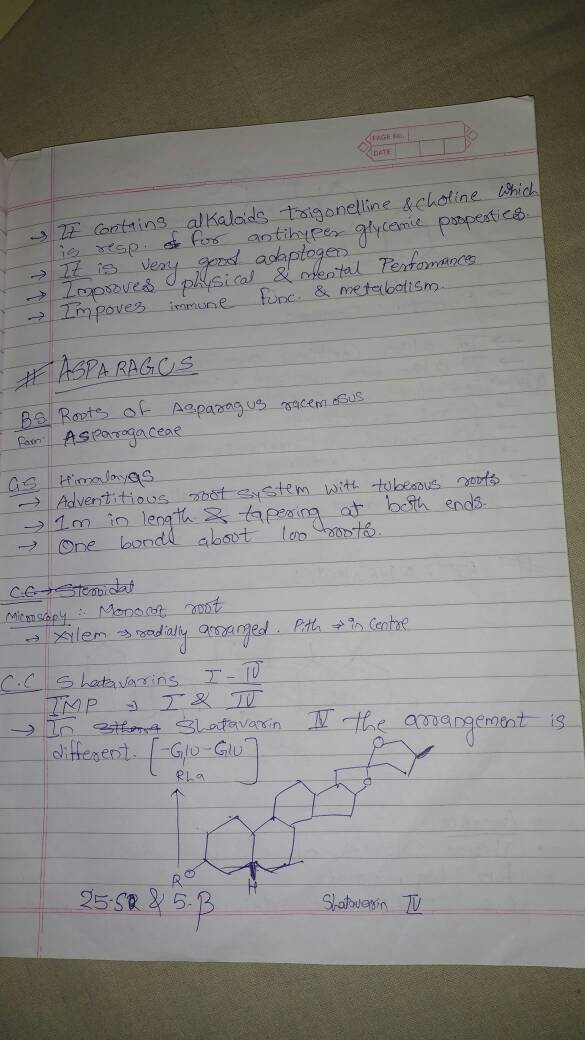 PAGE NO.
DATE
→ It contains alkaloids trigonelline & choline which
is resp. for antihyper glycemic properties.
→ It is very good adaptogen
→ Improves physical & mental Performances
→ Impoves immune func. & metabolism.
# ASPARAGUS
B.S Roots of Asparagus racemosus
Fam: Asparagaceae
G.S Himalayas
→ Adventitious root system with tuberous roots
→ 1m in length & tapering at both ends.
→ One bondl about 100 roots.
C.C → Steroidal
Microscopy :- Monocot root
→ Xylem → radially arranged. Pith → in Centre
C.C Shatavarins I - IV
IMP → I & IV
→ In Shatavarin IV the arrangement is
different. [-Glu-Glu]
Rha
O
O
RO
H
25-S & 5-β
Shatavarin IV